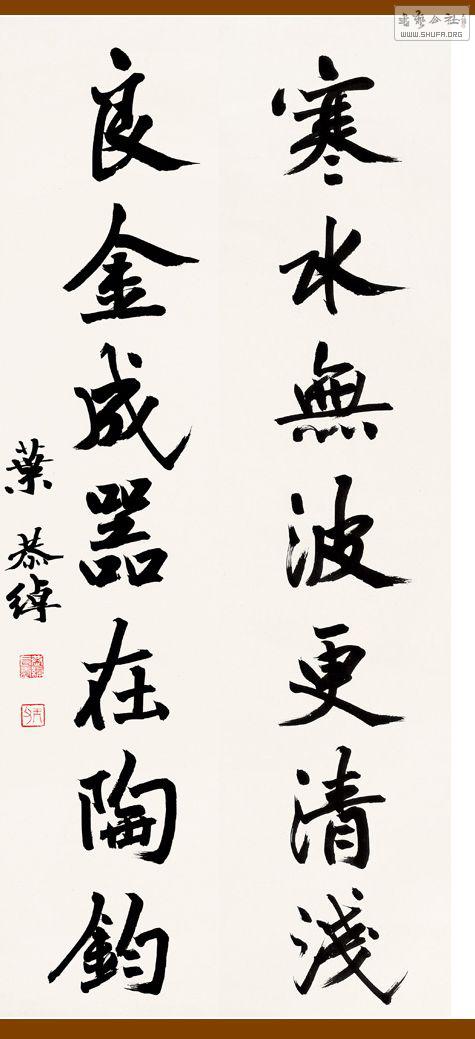 寒水無波更清淺
良金成器在陶鈞
葉恭綽
WWW.SHUFA.ORG